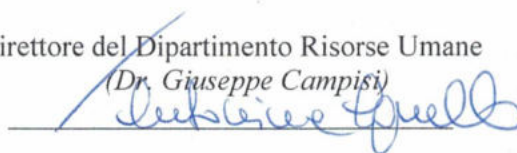 irettore del Dipartimento Risorse Umane
(Dr. Giuseppe Campisi)